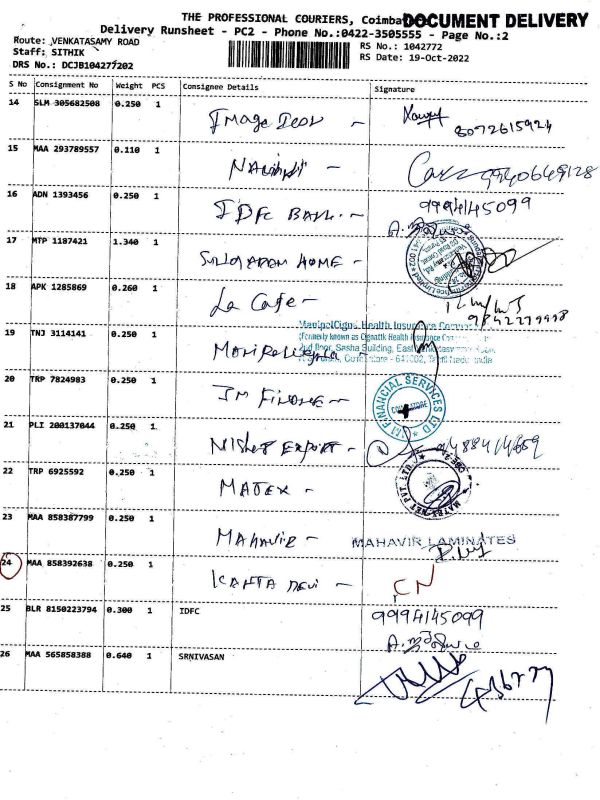 THE PROFESSIONAL COURIERS, Coimba DOCUMENT DELIVERY
Delivery Runsheet - PC2 - Phone No.:0422-3505555 - Page No.:2
Route: VENKATASAMY ROAD
Staff: SITHIK
RS No: 1042772
DRS No.: DCJB104277202
RS Date: 19-Oct-2022
S No Consignment No Weight PCS Consignee Details Signature
14 SLM 305682508 0.250 1 Image
8072615924
15 MAA 293789557 0.110 1
9940649128
16 ADN 1393456 0.250 1 IDFC BANK -
9994145099
17 MTP 1187421 1.340 1 HOME -
18 APK 1285869 0.260 1 La Cafe -
19 TNJ 3114141 0.250 1
ManipalCigna Health Insurance
(Formerly known as CignaTTK Health Insurance
2nd Floor, Sasha Building, East
Coimbatore - 641002, Tamil Nadu India
20 TRP 7824983 0.250 1 JM Finance -
JM FINANCIAL SERVICES LTD
COIMBATORE
21 PLI 200137044 0.250 1 Export -
22 TRP 6925592 0.250 1 MATEX -
23 MAA 858387799 0.250 1 MAHAVIR - MAHAVIR LAMINATES
24 MAA 858392638 0.250 1 KANTA Devi - CN
25 BLR 8150223794 0.300 1 IDFC 9994145099
26 MAA 565858388 0.640 1 SRNIVASAN